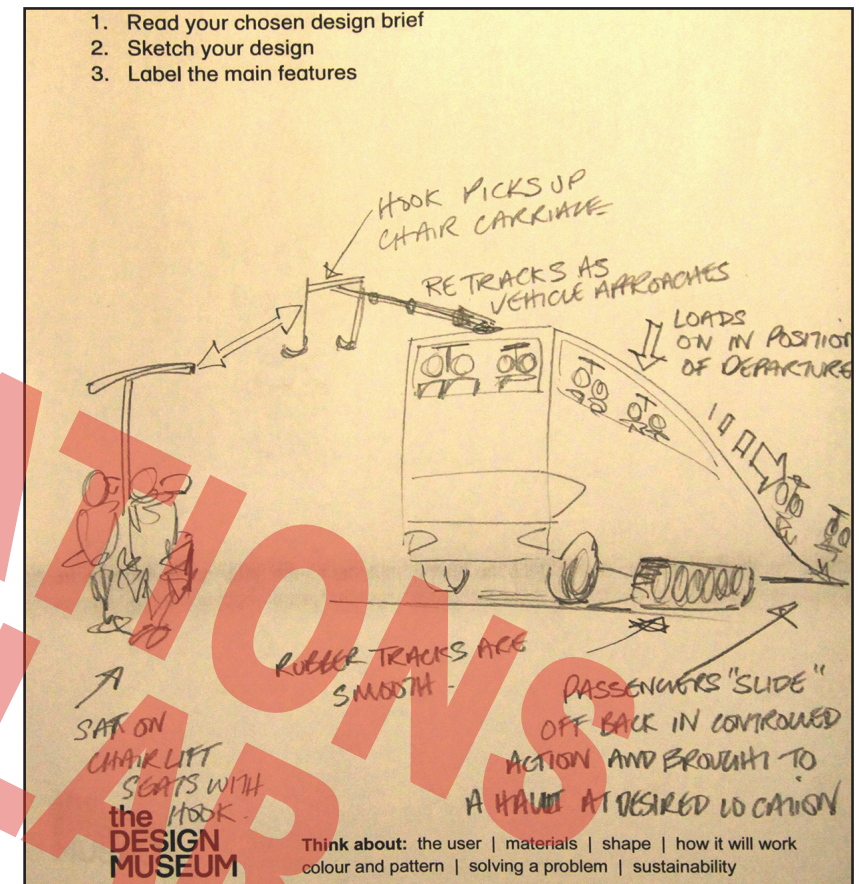 1. Read your chosen design brief
2. Sketch your design
3. Label the main features
HOOK PICKS UP
CHAIR CARRIAGE
RETRACKS AS
VEHICLE APPROACHES
LOADS
ON IN POSITION
OF DEPARTURE
RUBBER TRACKS ARE
SMOOTH
SAT ON
CHAIR LIFT
SEATS WITH
HOOK.
PASSENGERS "SLIDE"
OFF BACK IN CONTROLLED
ACTION AND BROUGHT TO
A HAULT AT DESIRED LOCATION
the
DESIGN
MUSEUM
Think about: the user | materials | shape | how it will work
colour and pattern | solving a problem | sustainability
TIONS
LAR